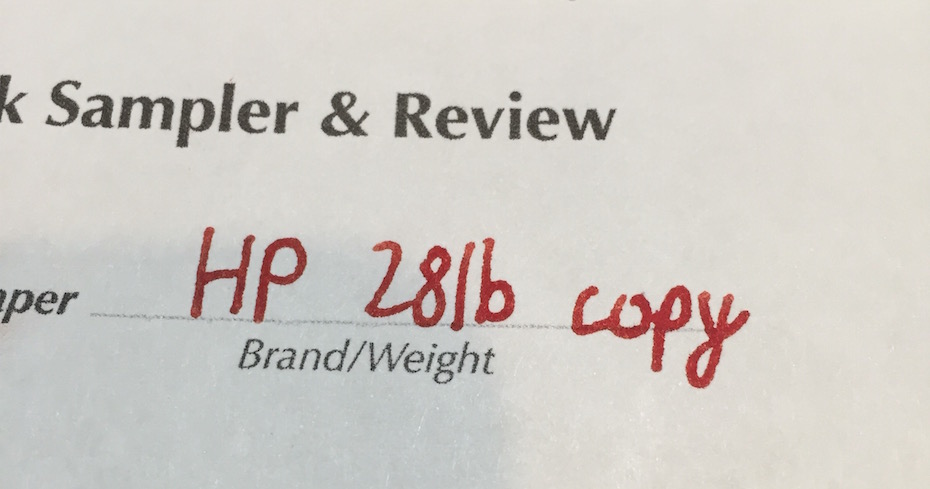 k Sampler & Review
per HP 28lb copy
Brand/Weight